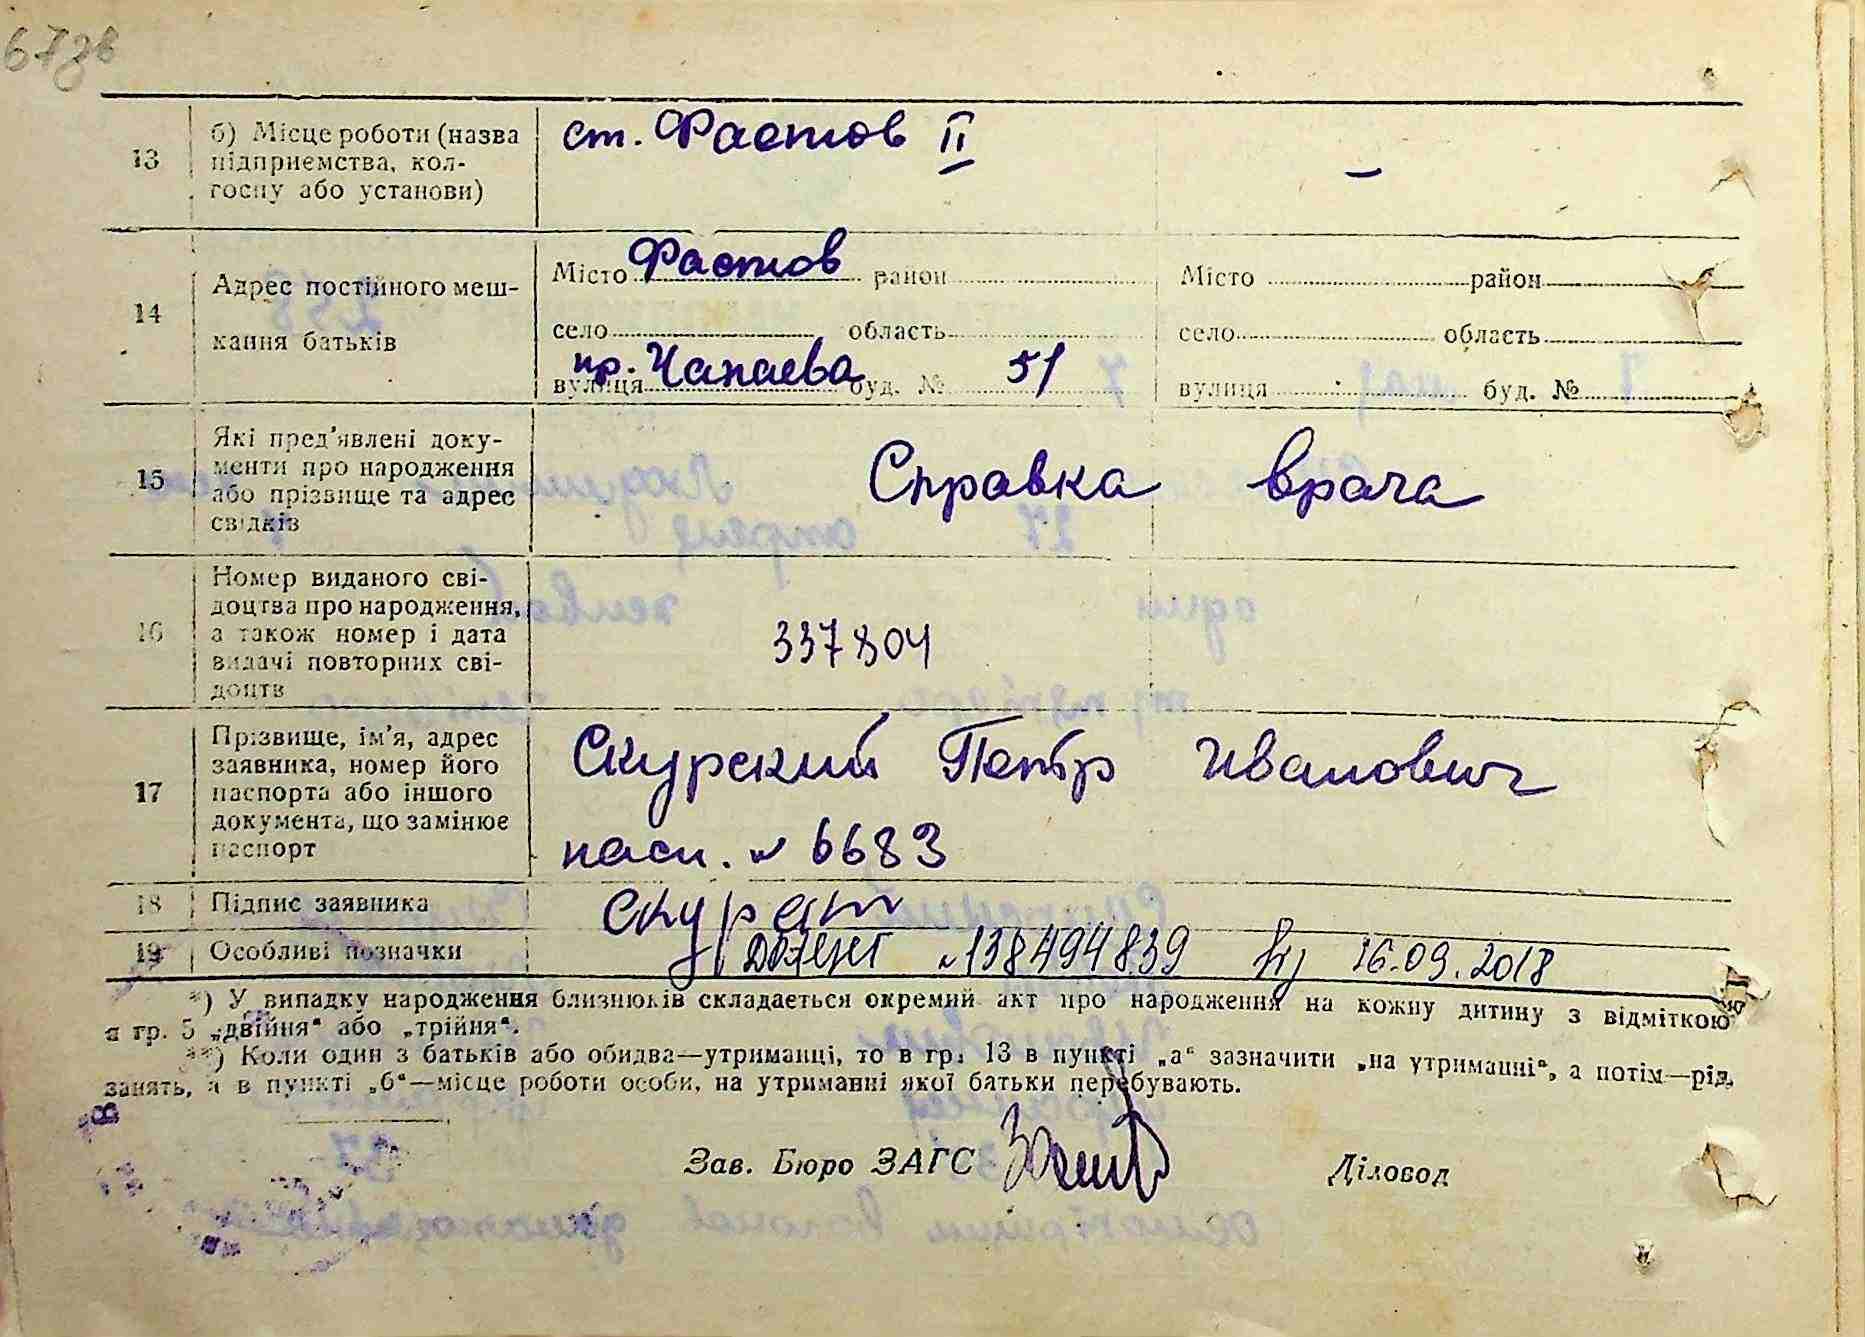 67зв
13
б) Місце роботи (назва
підприємства, кол-
госпу або установи)
ст. Фастов II
—
14
Адрес постійного меш-
кання батьків
Місто Фастов район
село область
вулиця пр. Чапаева буд. № 51
Місто район
село область
вулиця буд. №
15
Які пред'явлені доку-
менти про народження
або прізвище та адрес
свідків
Справка врача
16
Номер виданого сві-
доцтва про народження,
а також номер і дата
видачі повторних сві-
доцтв
337804
17
Прізвище, ім'я, адрес
заявника, номер його
паспорта або іншого
документа, що замінює
паспорт
Скурский Петр Иванович
пасп. № 6683
18
Підпис заявника
19
Особливі позначки
№138494839 16.09.2018
*) У випадку народження близнюків складається окремий акт про народження на кожну дитину з відміткою
в гр. 5 „двійня“ або „трійня“.
**) Коли один з батьків або обидва—утриманці, то в гр. 13 в пункті „а“ зазначити „на утриманні“, а потім—рід
занять, а в пункті „б“—місце роботи особи, на утриманні якої батьки перебувають.
Зав. Бюро ЗАГС
Діловод